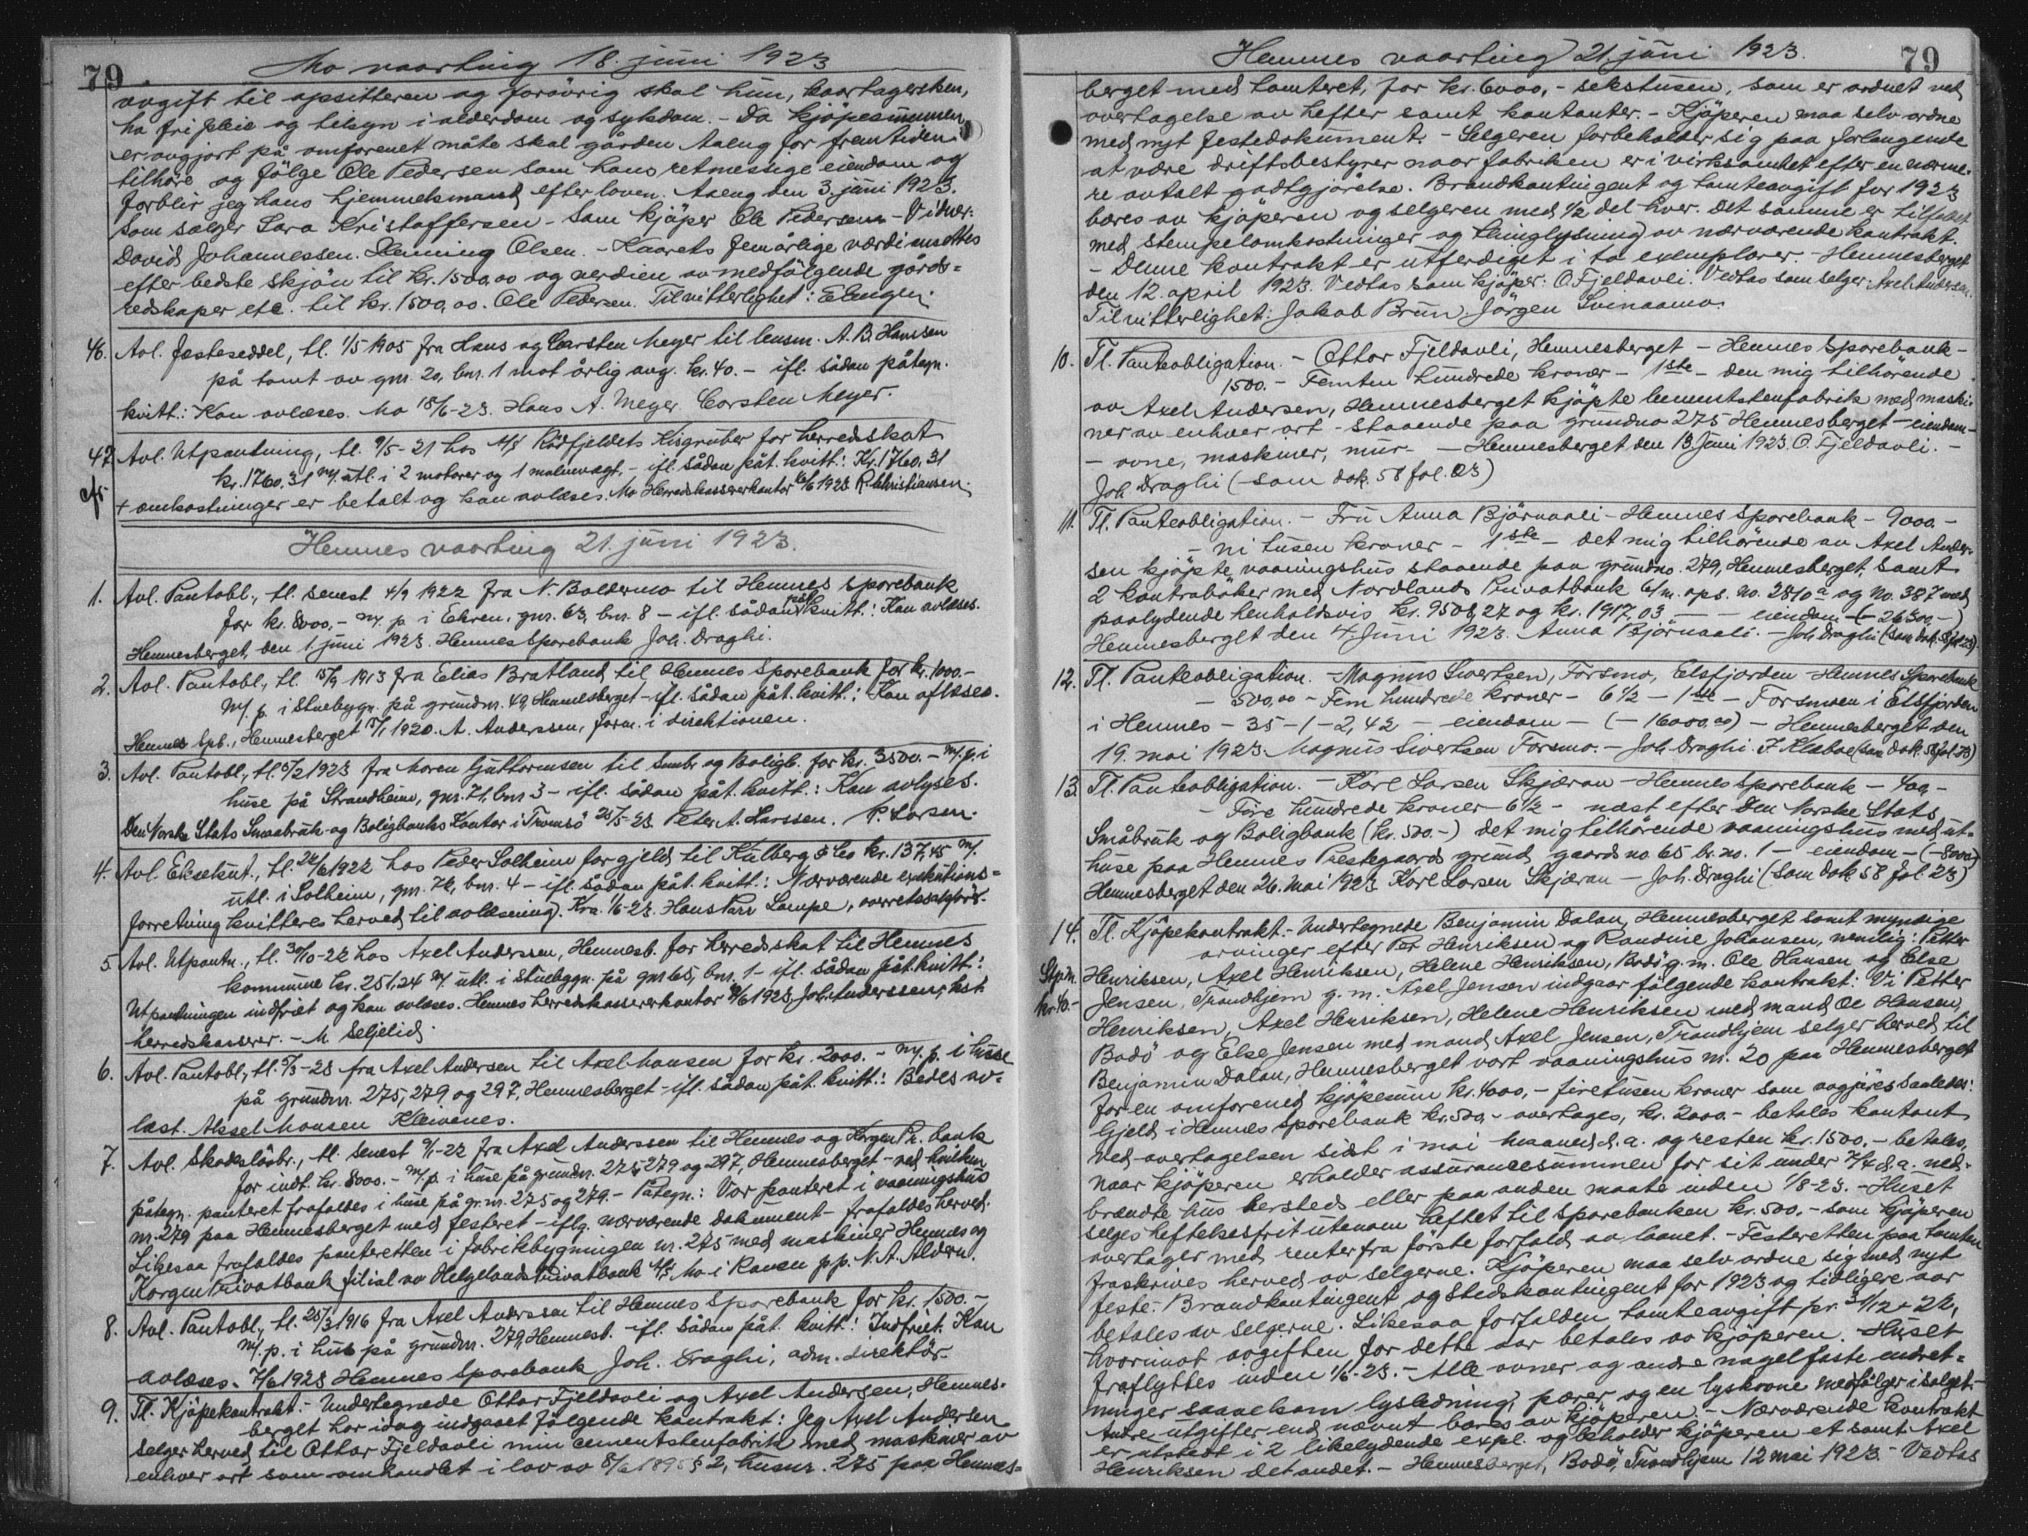 79 Mo vaarting 18. juni 1923
avgift til opsitteren og forøvrig skal hun, kaartagersken,
ha fri pleie og tilsyn i alderdom og sykdom. - Da kjøpesummen
er avgjort på omforenet måte skal gården Aaeng for fremtiden
tilhøre og følge Ole Pedersen som hans retmessige eiendom og
forblir jeg hans hjemmelsmand efter loven. Aaeng den 3. juni 1923.
Som sælger Lara Kristoffersen - Som kjøper Ole Pedersen - Vidner:
David Johannessen. Henning Olsen. - Kaarets femårlige værdi ansettes
efter bedste skjøn til kr. 1500,00 og verdien av medfølgende gårds=
redskaper etc. til kr. 1500,00. Ole Pedersen. Til vitterlighet: E. Engen.
46. Avl. festeseddel, tl. 1/5 1905 fra Hans og Carsten Meyer til lensm. A. B. Hansen
på tomt av gnr. 20, bnr. 1 mot årlig avg. kr. 40. - ifl. sådan påtegn.
kvitt.: Kan avlæses. Mo 18/6-23. Hans A. Meyer Carsten Meyer.
47. Avl. Utpantning, tl. 9/5-21 hos A/S Rødfjeldets Kisgruber for herredsskat
kr. 1760,31 m/ utl. i 2 motorer og 1 malmvagt, - ifl. sådan påt. kvitt.: Kr. 1760,31
+ omkostninger er betalt og kan avlæses. Mo Herredskassererkontor 16/6 1923 R. Christiansen.
Hemnes vaarting 21. juni 1923.
1. Avl. Pantobl., tl. senest 4/9 1922 fra N. Baldermo til Hemnes Sparebank
for kr. 8000,- m/ p. i Ekren, gnr. 63, bnr. 8 - ifl. sådan påt. kvitt.: Kan avlæses.
Hemnesberget, den 1. juni 1923. Hemnes Sparebank Joh. Draghi.
2. Avl. Pantobl., tl. 15/9 1913 fra Elias Bratland til Hemnes Sparebank for kr. 1000.-
m/ p. i Stuebygn. på grundnr. 49, Hemnesberget - ifl. sådan påt. kvitt.: Kan aflæses.
Hemnes Spb., Hemnesberget 15/1 1920. A. Anderssen, form. i direktionen.
3. Avl. Pantobl., tl. 5/2 1923 fra Maren Guttormsen til Småbr. og Boligb. for kr. 3500. - m/ p. i
huse på Strandheim, gnr. 71, bnr. 3 - ifl. sådan påt. kvitt.: Kan avlyses.
Den Norske Stats Smaabruk- og Boligbanks Kontor i Tromsø 25/5-23. Peter A. Larssen. P. Larsen.
4. Avl. Eksekut., tl. 22/6 1922 hos Peder Solheim for gjeld til Kulberg & Co kr. 137,45 m/
utl. i Solheim, gnr. 76, bnr. 4 - ifl. sådan påt. kvitt.: Nærværende exekutions=
forretning kvitteres herved til avlæsning. Kra. 1/6-23. Hans Parr Lampe, overretssakfører.
5. Avl. Utpantn., tl. 30/10-22 hos Axel Anderssen, Hemnesb. for herredsskat til Hemnes
kommune kr. 251,24 m/ utl. i Stuebygn. på gnr. 65, bnr. 1 - ifl. sådan påt. kvitt.:
Utpantningen indfriet og kan avlæses. Hemnes herredskassererkontor 9/6 1923, Joh. Anderssen, kst.
herredskasserer. - M. Seljelid.
6. Avl. Pantobl., tl. 5/3-23 fra Axel Andersen til Axel Monsen for kr. 2000. - m/ p. i huse
på grundnr. 275, 279 og 297, Hemnesberget - ifl. sådan påt. kvitt.: Bedes av=
læst. Aksel Monsen Kleivenes.
7. Avl. Skadesløsbr., tl. senest 9/1-22 fra Axel Anderssen til Hemnes og Korgen Pr. bank
for indt. kr. 8000. - m/ p. i huse på grundnr. 275, 279 og 297, Hemnesberget - ved hvilken
påtegn. panteret frafaldes i huse på gr.nr. 275 og 279. - Påtegn.: Vor panteret i vaaningshus
nr. 279 paa Hemnesberget med festeret - iflg. nærværende dokument - frafaldes herved.
Likesaa frafaldes panteretten i fabrikbygningen nr. 275 med maskiner Hemnes og
Korgen Privatbank filial av Helgelands Privatbank A/S Mo i Ranen p.p. N. A. Aldern.
8. Avl. Pantobl., tl. 28/3 1916 fra Axel Anderssen til Hemnes Sparebank for kr. 1500. -
m/ p. i hus på grundnr. 279, Hemnesb. - ifl. sådan påt. kvitt.: Indfriet. Kan
avlæses. 7/6 1923 Hemnes Sparebank Joh. Draghi, adm. direktør.
9. Tl. Kjøpekontrakt: - Undertegnede Ottar Fjeldavli og Axel Andersen, Hemnes-
berget har idag indgaaet følgende kontrakt: Jeg Axel Andersen
selger herved til Ottar Fjeldavli min cementstenfabrik med maskiner av
enhver art som omhandlet i lov av 8/6 1895 § 2, husnr. 275 paa Hemnes=
Hemnes vaarting 21. juni 1923. 79
berget med tomteret, for kr. 6000,- sekstusen, som er ordnet ved
overtagelse av hefter samt kontanter. - Kjøperen maa selv ordne
med nyt festedokument. - Selgeren forbeholder sig paa forlangende
at være driftsbestyrer naar fabriken er i virksomhet efter en nærme-
re avtalt godtgjørelse. Brandkontingent og tomteavgift for 1923
bæres av kjøperen og selgeren med 1/2 del hver. Det samme er tilfelde
med stempelomkostninger og thinglysning av nærværende kontrakt.
- Denne kontrakt er utferdiget i to exemplarer. - Hemnesberget
den 12. april 1923. Vedtas som kjøper: O. Fjeldavli. Vedtas som selger: Axel Andersen.
Til vitterlighet: Jakob Brun. Jørgen Svenaamo.
10. Tl. Panteobligation. - Ottar Fjeldavli, Hemnesberget - Hemnes Sparebank -
1500. - Femten hundrede kroner - 1ste - den mig tilhørende
av Axel Andersen, Hemnesberget kjøpte cementstenfabrik med maski-
ner av enhver art - staaende paa grundno 275 Hemnesberget - eiendom -
- ovne, maskiner, mur. - Hemnesberget den 13 Juni 1923. O. Fjeldavli. -
Joh Draghi (- som dok. 58 fol. 23)
11. Tl. Panteobligation. - Fru Anna Bjørnaali - Hemnes Sparebank - 9000. -
- ni tusen kroner - 1ste - det mig tilhørende av Axel Ander-
sen kjøpte vaaningshus staaende paa grundno. 279, Hemnesberget samt
2 kontrabøker med Nordlands Privatbank 6/m. ops. no. 2810 a og no. 387 med
paalydende henholdsvis kr. 9508,27 og kr. 1917,03 - - eiendom - (- 26300,-)
Hemnesberget den 4 Juni 1923. Anna Bjørnaali. - Joh Draghi (som dok. 58 fol 23)
12. Tl. Panteobligation. - Magnus Sivertsen, Forsmo, Elsfjorden - Hemnes Sparebank
- 500,00 - Fem hundrede kroner - 6 1/2 - 1ste - Forsmoen i Elsfjorden
i Hemnes - 35 - 1 - 2,42 - eiendom - (- 16000,00) - Hemnesberget den
19. mai 1923. Magnus Sivertsen Forsmo. - Joh. Draghi. F Klæboe (som dok. 58 fol. 23)
13. Tl. Panteobligation. - Karl Larsen Skjæran - Hemnes Sparebank - 400,-
- Fire hundrede kroner - 6 1/2 - næst efter Den Norske Stats
Småbruk og Boligbank (kr. 500.-) det mig tilhørende vaaningshus med ut-
huse paa Hemnes Prestegaards grund gaards no. 65 br. no. 1 - eiendom - (- 8000)
Hemnesberget den 26. Mai 1923 Karl Larsen Skjæran - Joh. Draghi (som dok 58 fol. 23)
14. Tl. Kjøpekontrakt. - Undertegnede Benjamin Dalan, Hemnesberget samt myndige
arvinger efter Per Henriksen og Randine Johansen, nemlig: Petter
Stpm. Henriksen, Axel Henriksen, Helene Henriksen, Bodø g. m. Ole Hansen og Else
kr. 40.- Jensen, Trondhjem g. m. Axel Jensen indgaar følgende kontrakt: Vi Petter
Henriksen, Axel Henriksen, Helene Henriksen med mand Ole Hansen,
Bodø og Else Jensen med mand Axel Jensen, Trondhjem selger herved til
Benjamin Dalan, Hemnesberget vort vaaningshus nr. 20 paa Hemnesberget
for en omforenet kjøpesum kr. 4000,- firetusen kroner som avgjøres saaledes:
Gjeld i Hemnes Sparebank kr. 500,- overtages, kr. 2000.- betales kontant
ved overtagelsen sidst i mai maaned d. a. og resten kr. 1500.- betales,
naar kjøperen erholder assurancesummen for sit under 7/4 d. a. ned-
brændte hus hersteds eller paa anden maate inden 1/8-23. - Huset
selges heftelsesfrit utenom heftet til Sparebanken kr. 500.- som kjøperen
overtager med renter fra første forfald av laanet. - Festeretten paa tomten
fraskrives herved av selgerne. Kjøperen maa selv ordne sig med nyt
feste. - Brandkontingent og Stedskontingent for 1923 og tidligere aar
betales av selgerne. Likesaa forfalden tomteavgift pr. 31/12 - 22,
hvorimot avgiften for dette aar betales av kjøperen. - Huset
fraflyttes inden 1/6-23. - Alle ovner og andre nagelfaste indret=
ninger saavelsom lysledning, pærer og en lyskrone medfølger i salget. -
Andre utgifter end nævnt bæres av kjøperen - Nærværende kontrakt
er utstedt i 2 likelydende expl. og beholder kjøperen et samt Axel
Henriksen det andet. - Hemnesberget, Bodø, Trondhjem 12 mai 1923. - Vedtas